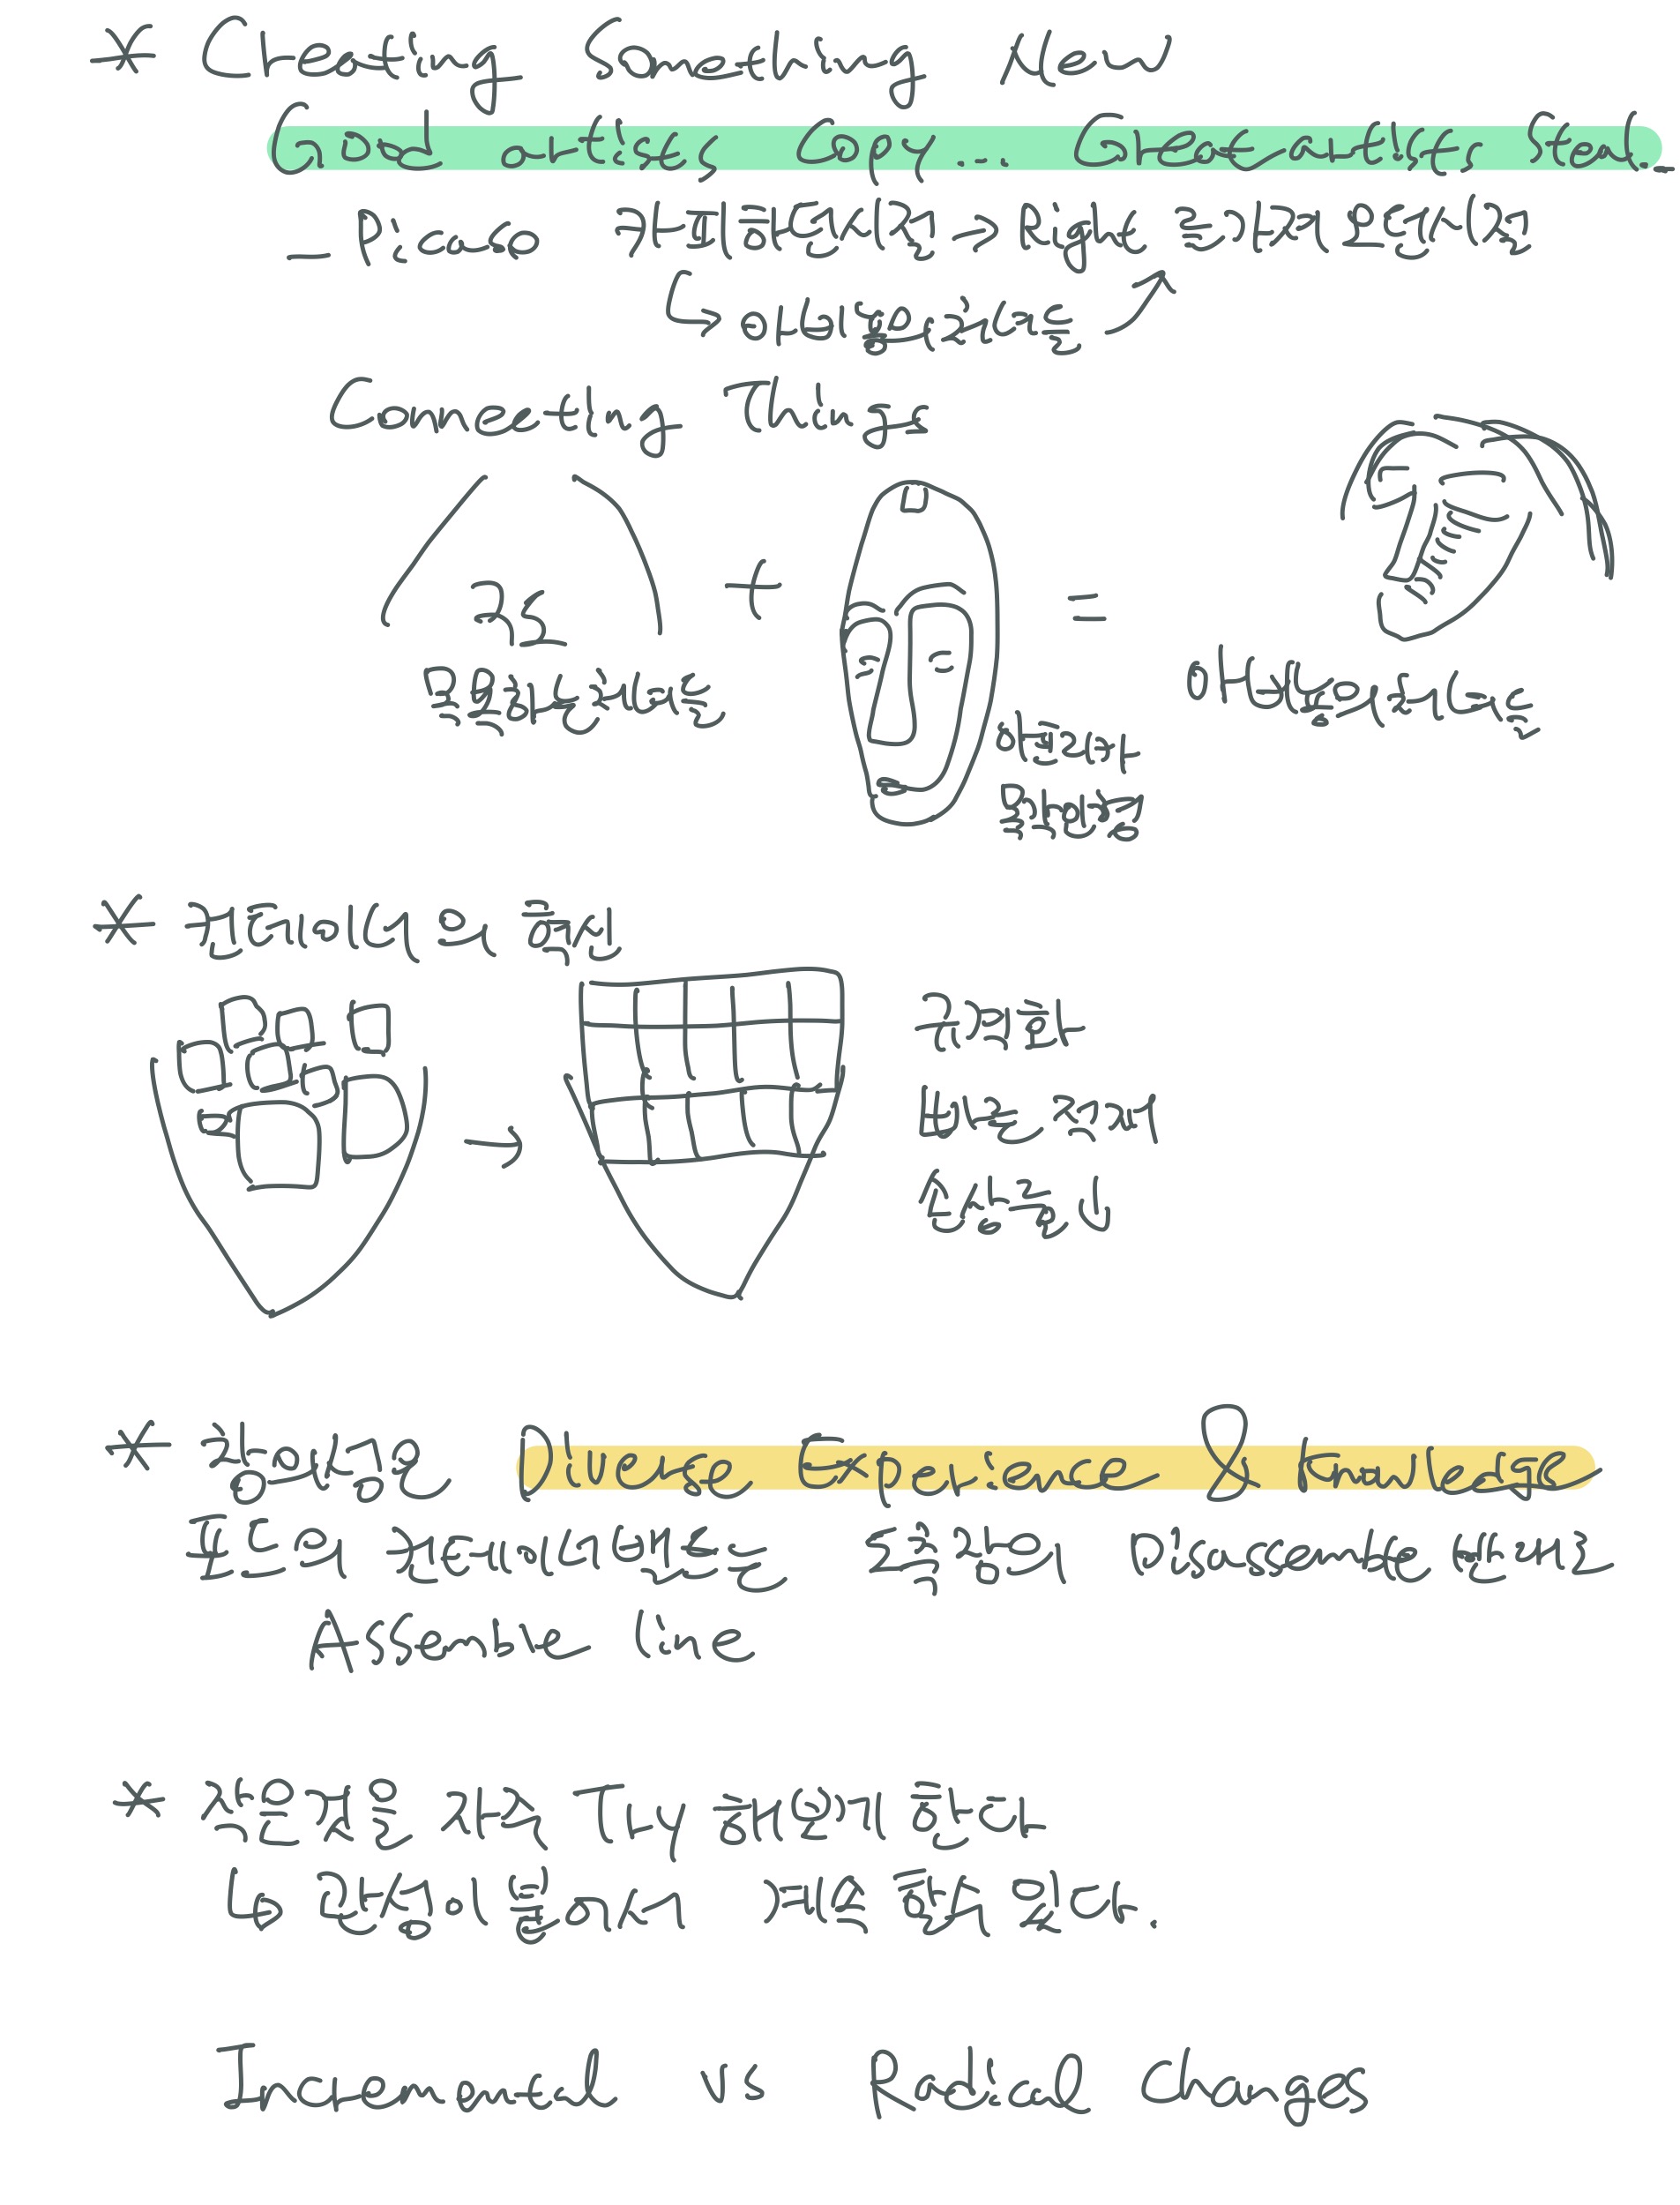 * Creating Something New
Good artists, Copy.... Great artists, Steal...
_ Picaso 카피하던시절 → Right 르네상스
↳ 아비뇽의 처녀들
Connecting Things
+ =
아비뇽의 처녀들
아프리카
* 컨테이너의 혁신
→ 규격화
빠른 적재
손상율 ↓
* 창의성은 Diverse Experience & knowledge
포드의 컨베이어 벨트는 도축장의 Disassemble 벨트
Assemble line
* 작은것을 자주 Try 해봐야 한다
↳ 관성이 붙어서 계속 할수 있다.
Incremental vs Radical Changes